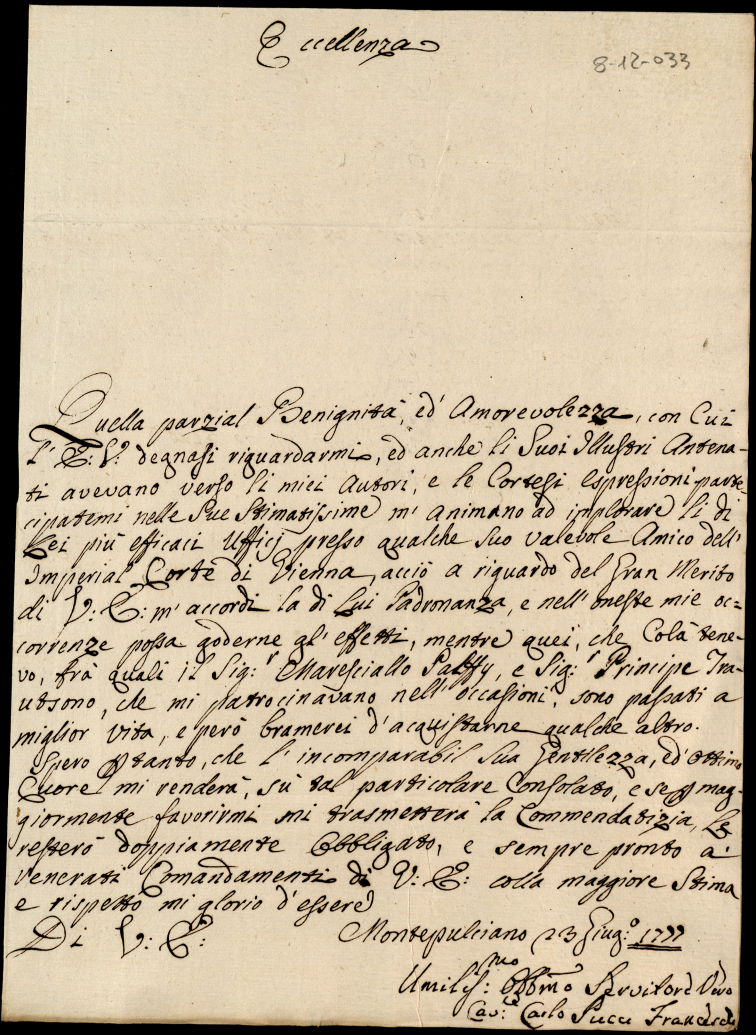 Eccellenza
8-12-033
Quella parzial Benignità, ed' Amorevolezza, con Cui
l' E: V: degnasi riguardarmi, ed anche li Suoi Illustri Antena-
ti avevano verso li miei Autori, e le Cortesi espressioni parte
cipatemi nelle Sue Stimatissime m' animano ad implorare li di
Lei più efficaci Ufficj presso qualche suo valevole Amico dell'
Imperial Corte di Vienna, acciò a riguardo del Gran Merito
di V: E: m' accordi la di Lui Padronanza, e nell' oneste mie oc=
correnze possa goderne gl' effetti, mentre quei, che Colà tene-
vo, frà quali il Sig:r Maresciallo Palffy, e Sig:r Principe Tra-
utsono, che mi patrocinavano nell' occasioni, sono passati a
miglior vita, e però bramerei d'acquistarne qualche altro.
Spero ptanto, che l' incomparabil sua Gentilezza, ed' ottimo
Cuore mi renderà, sù tal particolare Consolato, e se p mag-
giormente favorirmi mi trasmetterà la Commendatizia, Le
resterò doppiamente Obbligato, e sempre pronto a'
venerati Comandamenti di V: E: colla maggiore Stima
e rispetto mi glorio d'essere
Di V: E:
Montepulciano 23 Giug:o
Umilis:mo Obbmo Servitore Vero
Cav:re Carlo Pucci Franceschi